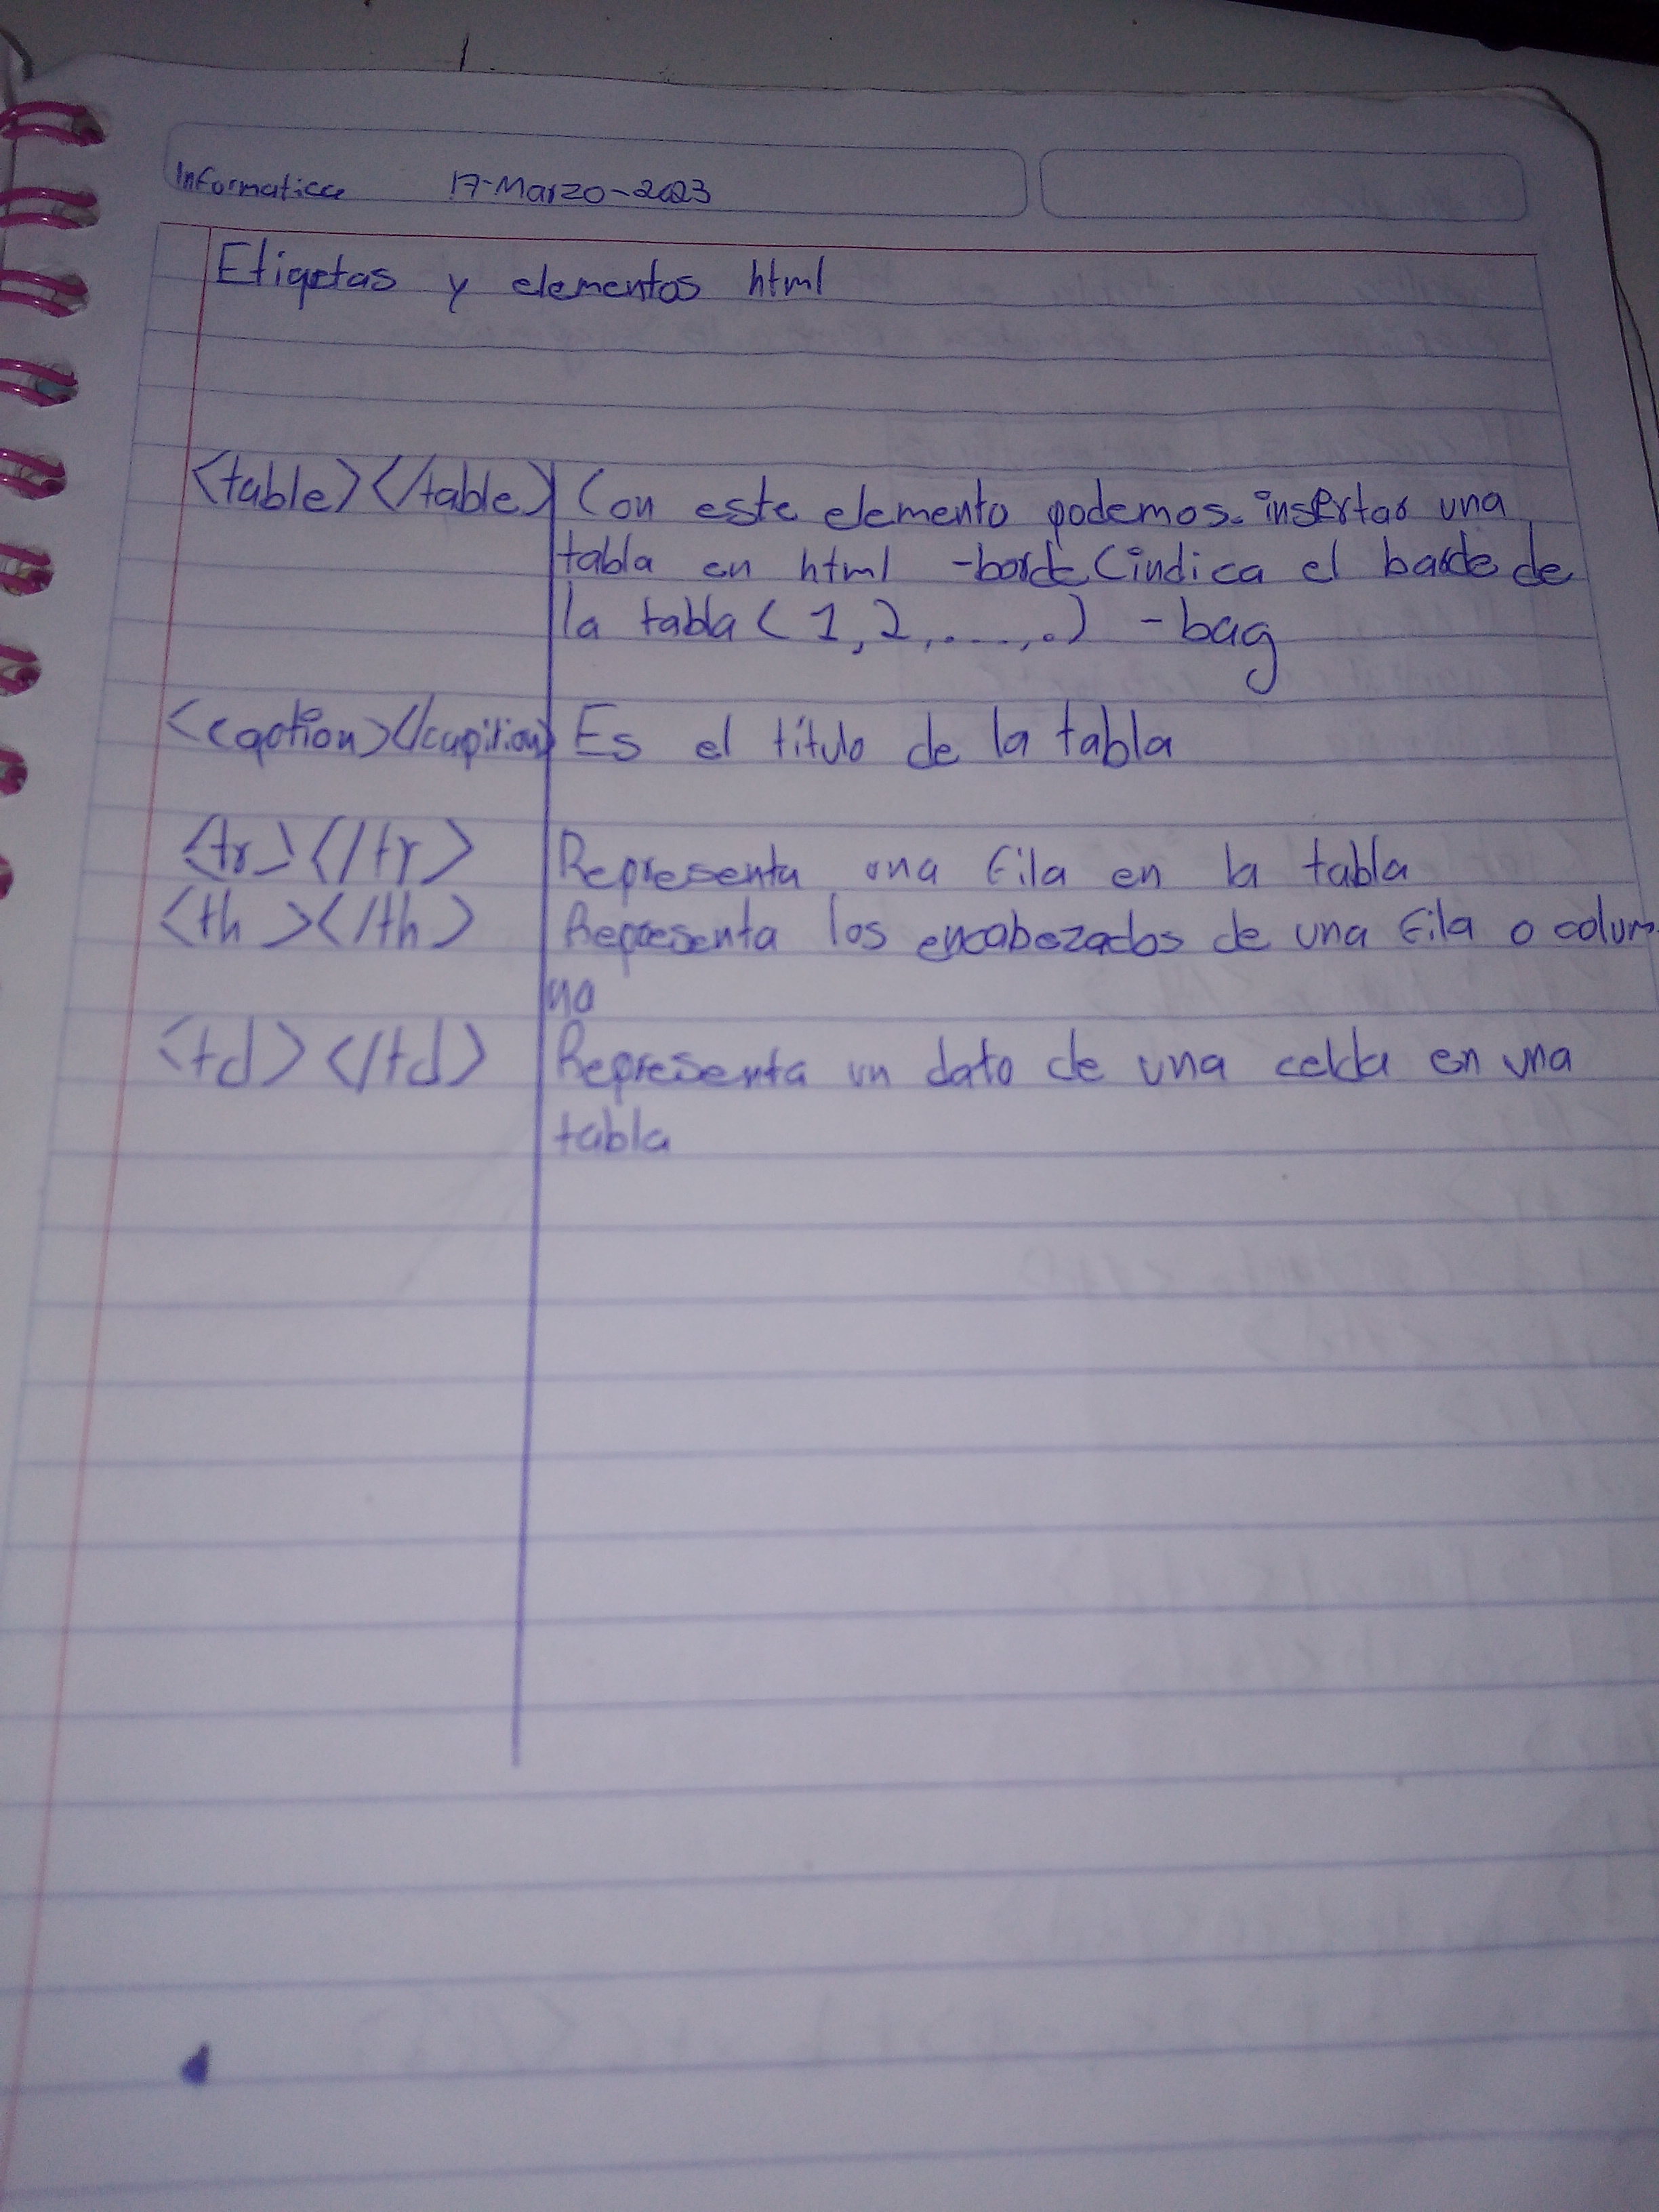 Informatica 17-Marzo-2023
Etiqetas y elementos html
<table></table> Con este elemento podemos insertar una
tabla en html -borde (indica el borde de
la tabla (1,2,....,.) -bag
<caption></capition> Es el título de la tabla
<tr></tr> Representa una fila en la tabla
<th></th> Representa los encabezados de una fila o colum
na
<td></td> Representa un dato de una celda en una
tabla